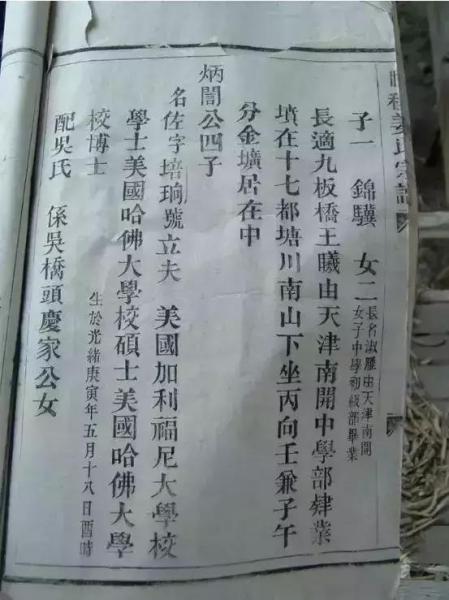 姜氏宗譜
子一 錦驥 女二 長名淑雁由天津南開
女子中學初級部畢業
長適九板橋王曦由天津南開中學部肄業
墳在十七都塘川南山下坐丙向壬兼子午
分金壙居在中
炳誾公四子
名佐字培珦號立夫 美國加利福尼大學校
學士美國哈佛大學校碩士美國哈佛大學
校博士 生於光緒庚寅年五月十八日酉時
配吳氏 係吳橋頭慶家公女